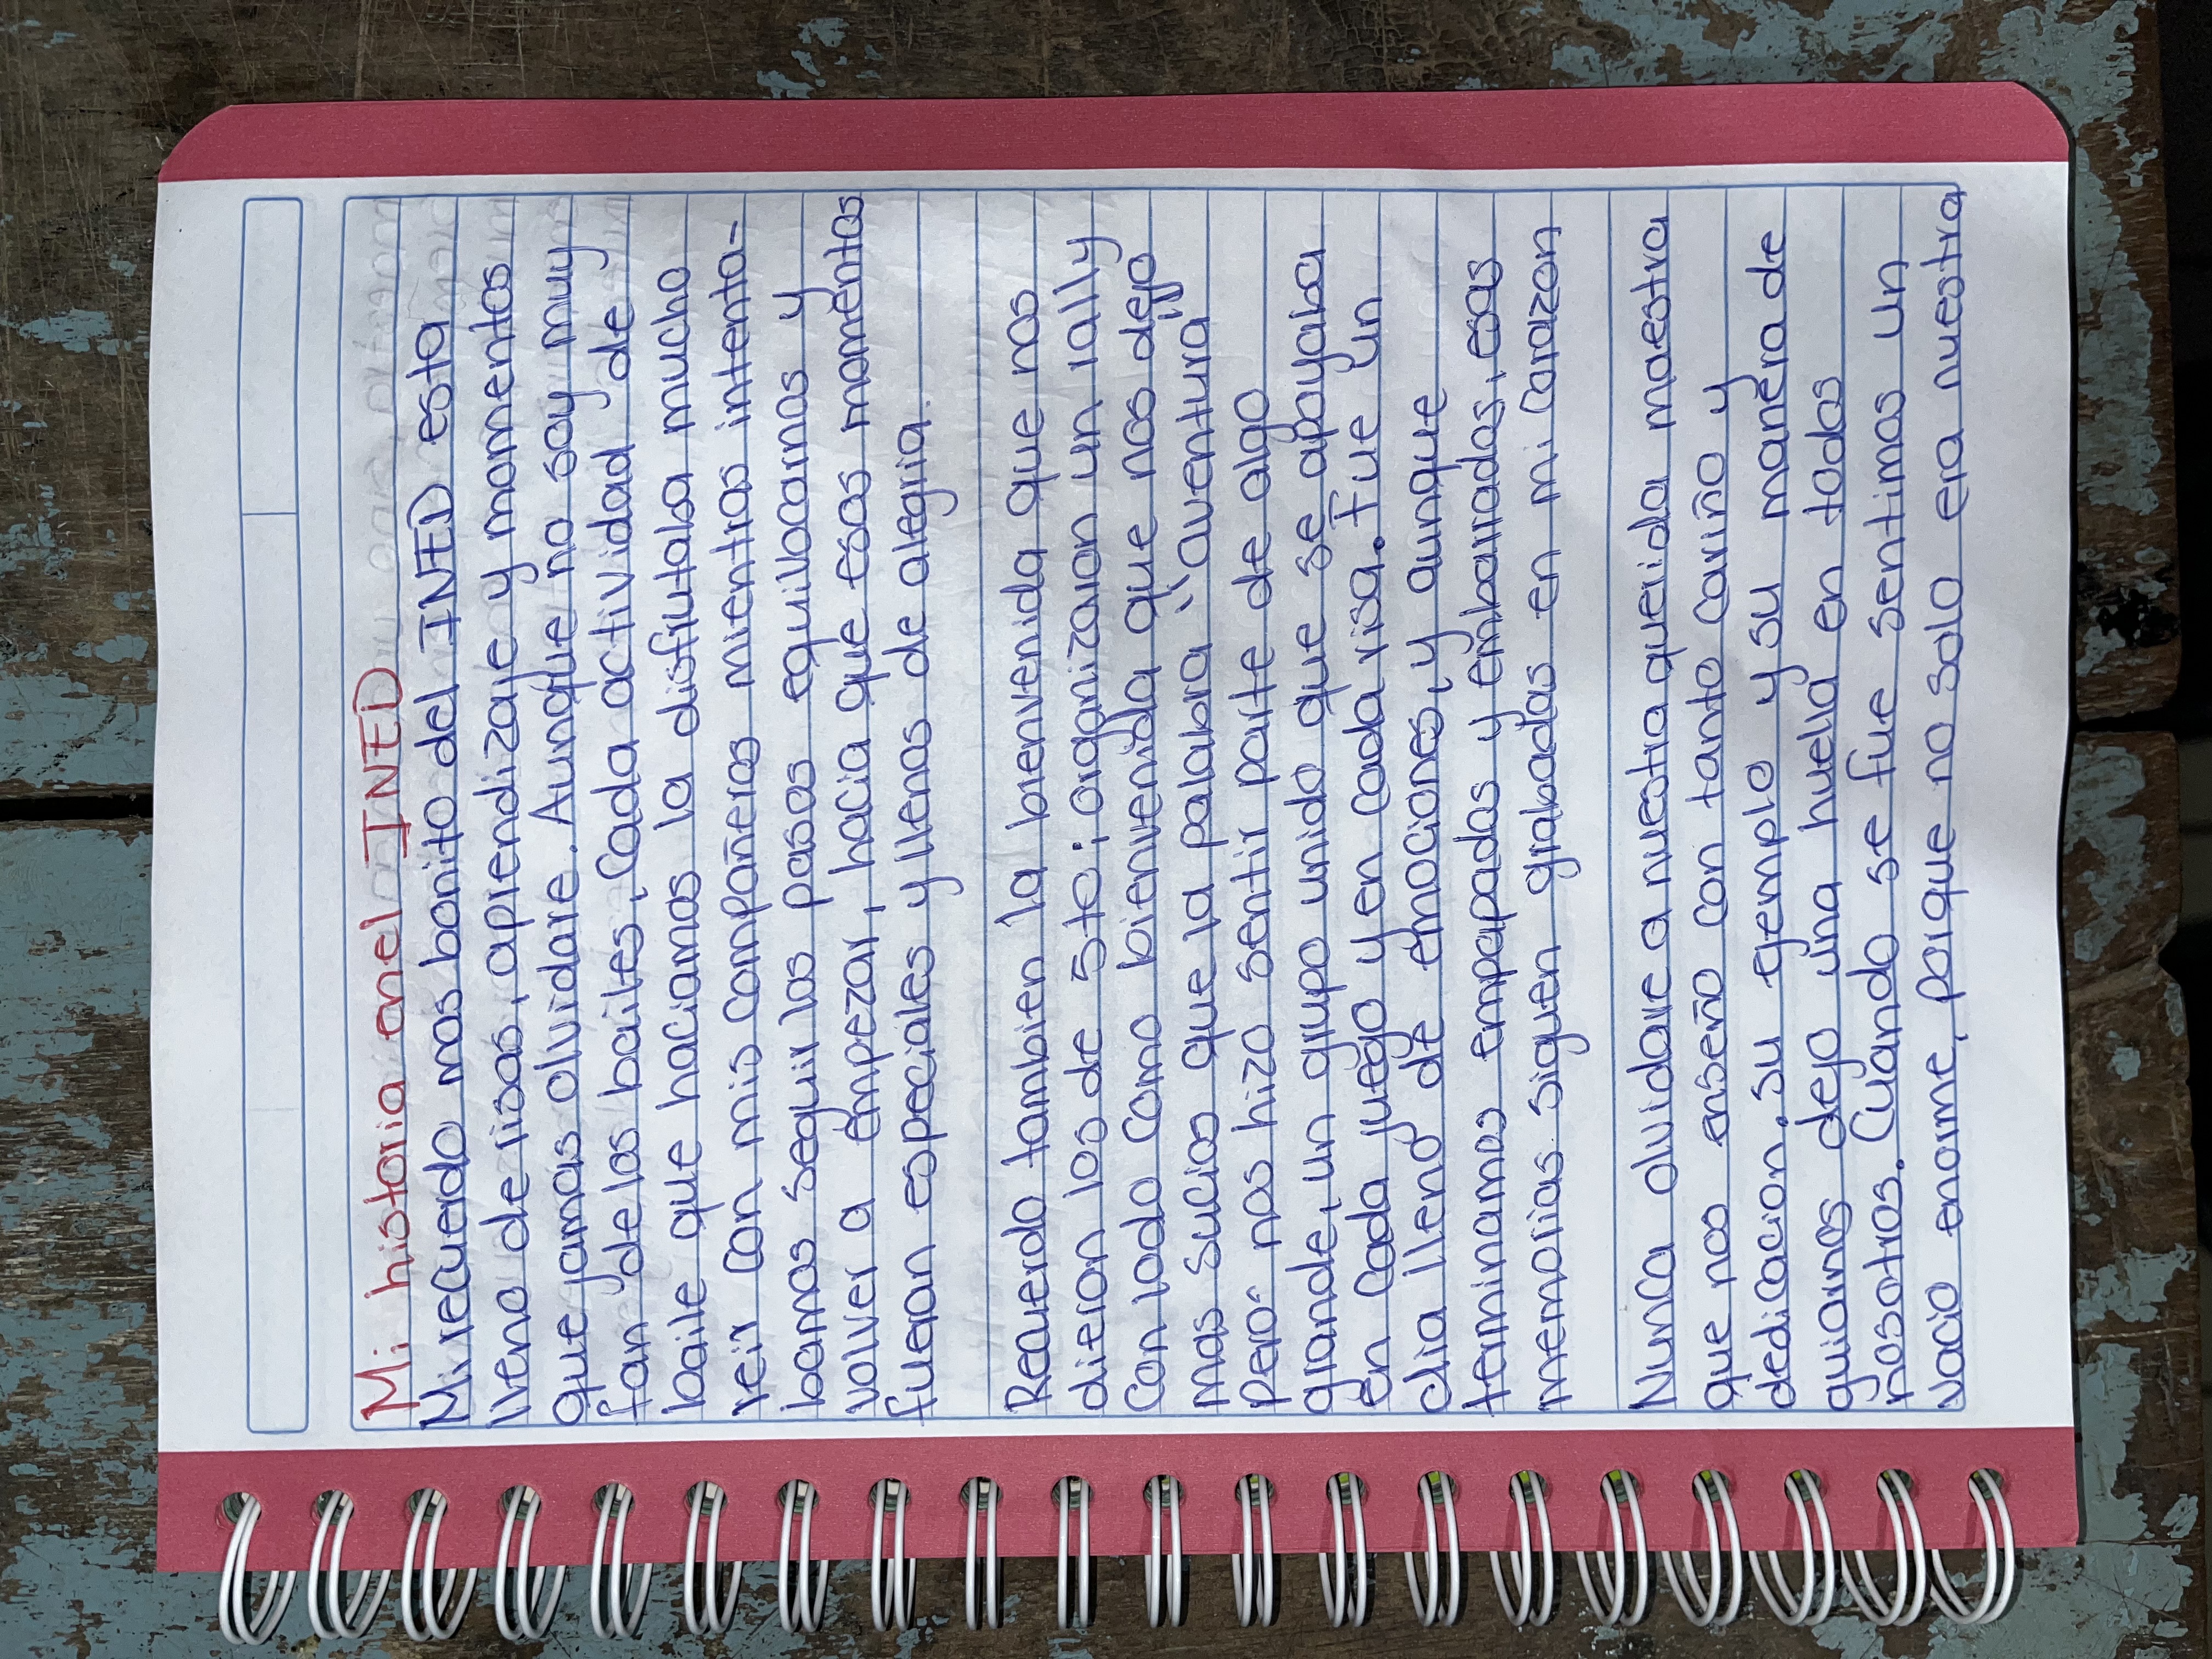 Mi historia en el INED
Mi recuerdo mas bonito del INED esta
lleno de risas, aprendizaje y momentos
que jamas olvidare. Aunque no soy muy
fan de los bailes, Cada actividad de
baile que haciamos la disfrutaba mucho
reir con mis compañeros mientras intenta-
bamos seguir los pasos equilocarnos y
volver a empezar, hacia que esos momentos
fueran especiales y llenos de alegria.
Recuerdo tambien la bienvenida que nos
dieron los de 5to; organizaron un rally
Con lodo como bienvenida que nos dejo
mas sucios que la palabra "aventura"
pero nos hizo sentir parte de algo
grande, un grupo unido que se apoyaba
en cada juego y en cada risa. Fue un
dia lleno de emociones, y aunque
terminamos empapados y embarrados, esas
memorias siguen grabadas en mi corazon
Nunca olvidare a nuestra querida maestra
que nos enseño con tanto cariño y
dedicacion. su ejemplo y su manera de
guiarnos dejo una huella en todos
nosotros. Cuando se fue sentimos un
vacio enorme, porque no solo era nuestra